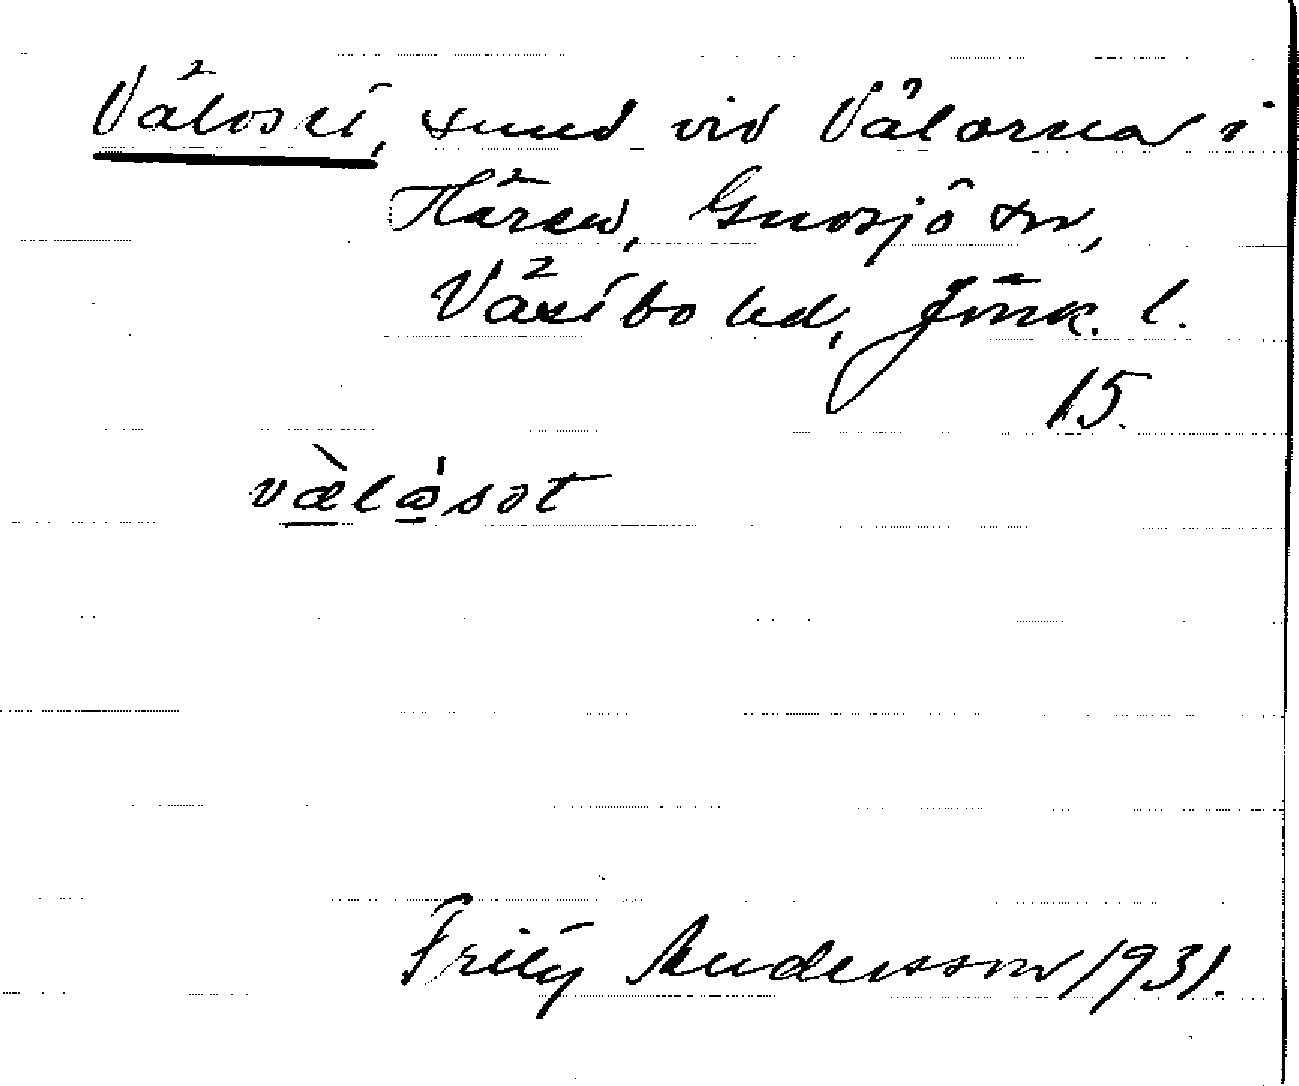 Väloset, sund vid Välorna i
Hären, Gnosjö sn,
Västbo hd, Jönk. l.
15.
vælåsət
Fritz Andersson 1931.